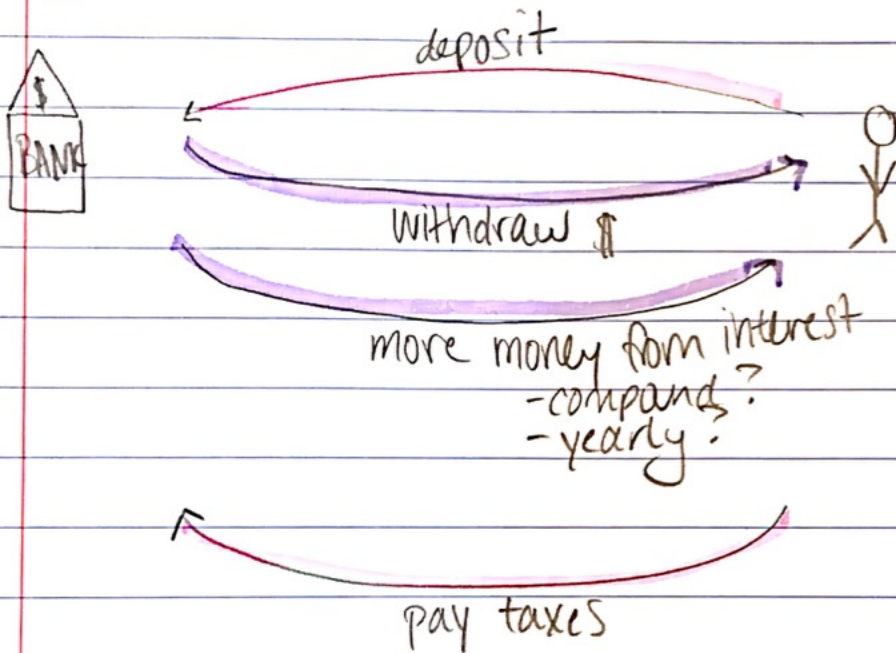 deposit
$
BANK
withdraw $
more money from interest
-compound?
-yearly?
pay taxes